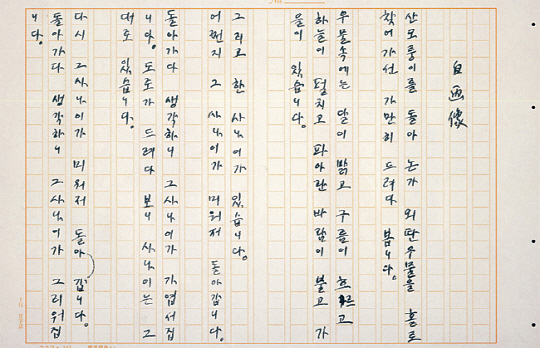 自画像
산모퉁이를 돌아 논가 외딴우물을 홀로
찾어가선 가만히 드려다 봅니다.
우물속에는 달이 밝고 구름이 흐르고
하늘이 펼치고 파아란 바람이 불고 가
을이 있습니다.
그리고 한 사나이가 있습니다.
어쩐지 그 사나이가 미워저 돌아갑니다.
돌아가다 생각하니 그사나이가 가엽서집
니다. 도로가 드려다 보니 사나이는 그
대로 있습니다.
다시 그사나이가 미워저 돌아 갑니다.
돌아가다 생각하니 그사나이가 그리워집
니다.